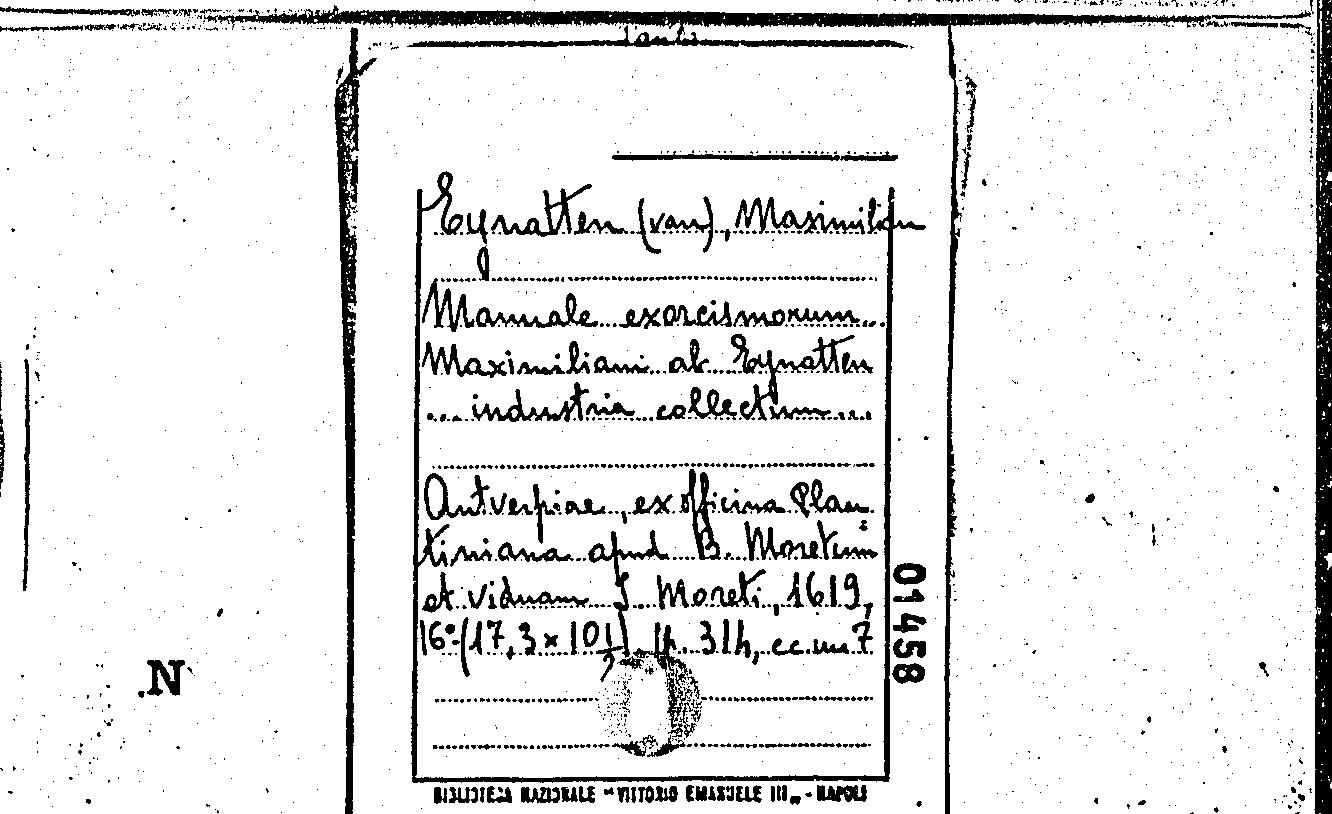 Eynatten (van), Maximilian
Manuale exorcismorum...
Maximiliani ab Eynatten
... industria collectum...
Antverpiae, ex officina Plan
tiniana apud B. Moretum
et viduam J. Moreti, 1619,
16°-(17,3 x 10 1/2). pp. 314, cc.nn 7
01458
.N
BIBLIOTECA NAZIONALE "VITTORIO EMANUELE III" - NAPOLI